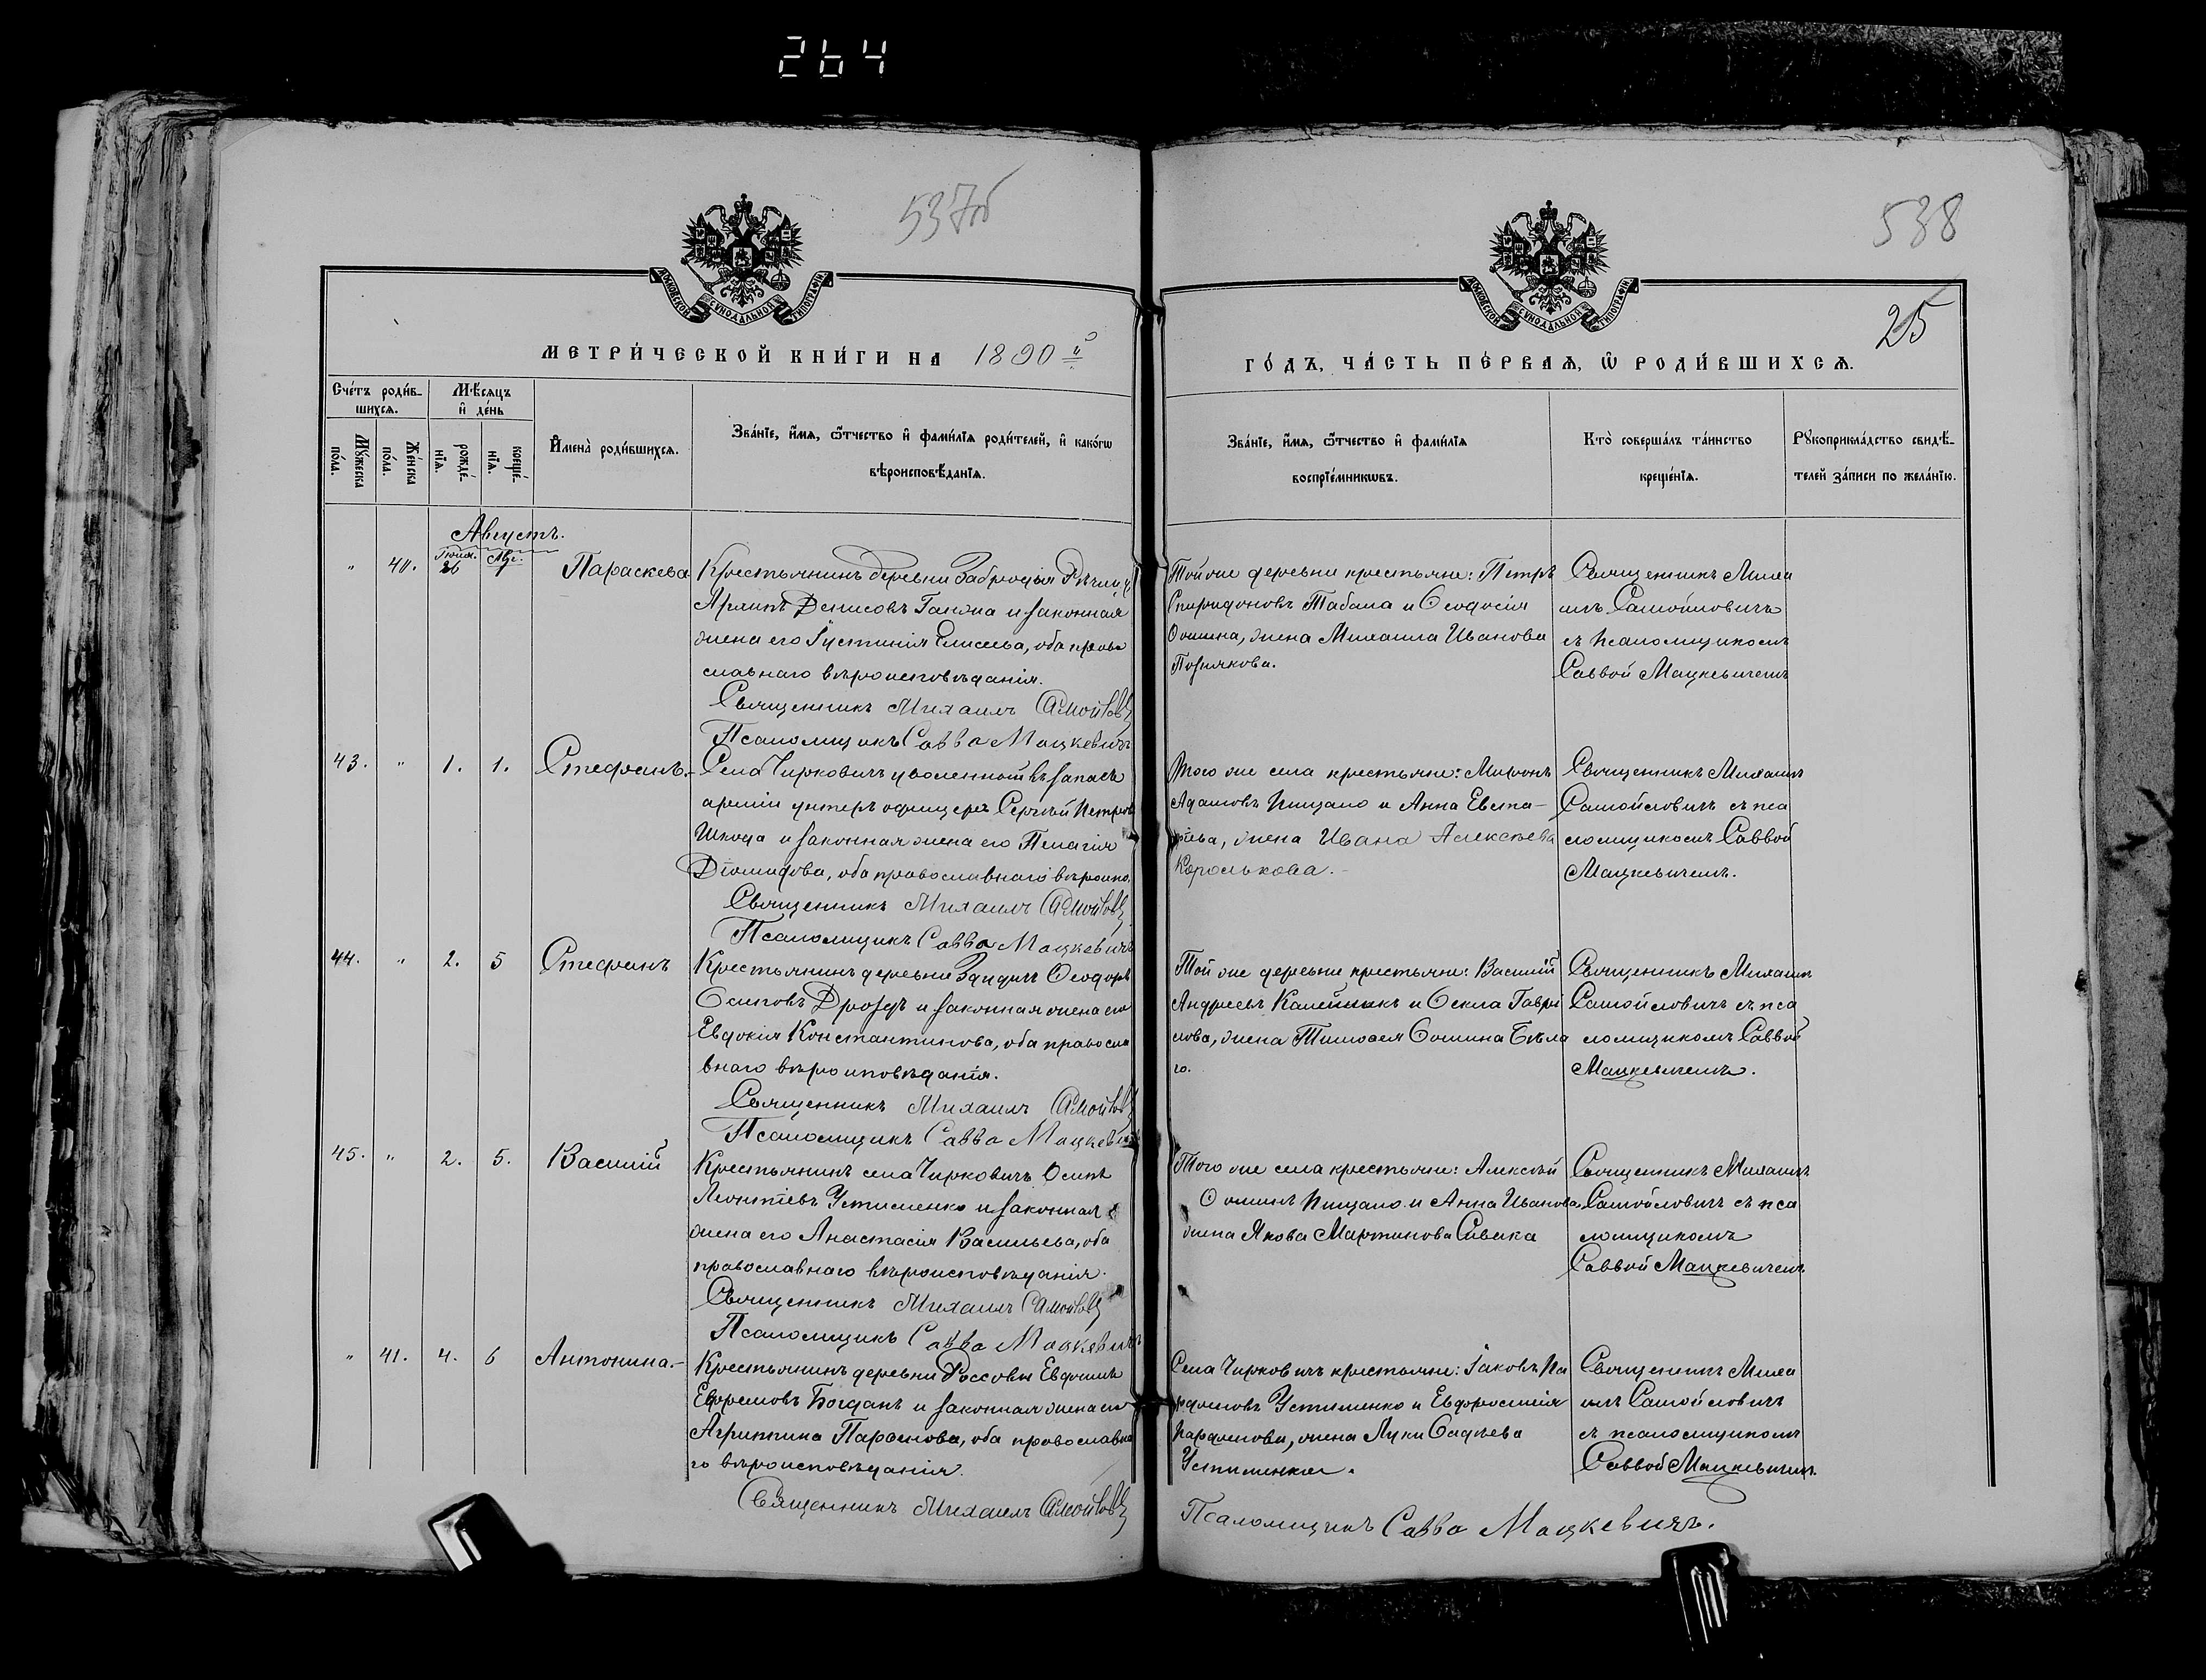 264
537об
538
25
МОСКОВСКОЙ СѴНОДАЛЬНОЙ ТИПОГРАФІИ
МОСКОВСКОЙ СѴНОДАЛЬНОЙ ТИПОГРАФІИ
МЕТРИ́ЧЕСКОЙ КНИ́ГИ НА 1890й
ГО́ДЪ, ЧА́СТЬ ПЕ́РВАѦ, Ѡ҆ РОДИ́ВШИХСѦ.
Сче́тъ роди́в-
шихсѧ.
Мѣ́сѧцъ
и҆ де́нь
Мꙋ́жеска
по́ла.
Же́нска
по́ла.
рожде́-
нїѧ.
креще́-
нїѧ.
И҆мена̀ роди́вшихсѧ.
Зва́нїе, и҆́мѧ, ѻ҆́тчество и҆ фами́лїѧ роди́телей, и҆ како́гѡ
вѣроисповѣ́данїѧ.
Зва́нїе, и҆́мѧ, ѻ҆́тчество и҆ фами́лїѧ
воспрїе́мникѡвъ.
Кто̀ соверша́лъ та́инство
креще́нїѧ.
Рꙋкоприкла́дство свидѣ́-
телей за́писи по жела́нїю.
Августъ.
" 40. Іюля. 26 Авг. 1 Параскева
Крестьянинъ деревни
Архипъ Денисовъ Гапона и законная
жена его Іустинія Елисеева, оба право
славнаго вѣроисповѣданія.
Священникъ Михаилъ Самойлов
Псаломщикъ Савва Мацкевичъ
Той же деревни крестьяне: Петръ
Спиридоновъ Табала и Ѳеодосія
Ѳомина, жена Михаила Иванова
Позлякова.
Священникъ Миха
илъ Самойловичъ
съ псаломщикомъ
Саввой Мацкевичемъ
43. " 1. 1. Стефанъ.
Села Чирковичъ уволенный въ запасъ
арміи унтеръ офицеръ Сергѣй Петровъ
Шкода и законная жена его Пелагія
Діомидова, оба православнаго вѣроисп.
Священникъ Михаилъ Самойлов
Псаломщикъ Савва Мацкевичъ
Того же села крестьяне: Миронъ
Адамовъ Пищало и Анна Евста-
фіева, жена Ивана Алексѣева
Королькова.
Священникъ Михаилъ
Самойловичъ съ пса
ломщикомъ Саввой
Мацкевичемъ.
44. " 2. 5 Стефанъ
Крестьянинъ деревни Ѳеодоръ
Осиповъ Дроздъ и законная жена его
Евдокія Константинова, оба правосла
внаго вѣроисповѣданія.
Священникъ Михаилъ Самойлов
Псаломщикъ Савва Мацкевичъ
Той же деревни крестьяне: Василій
Андреевъ и Ѳекла Гаврі
лова, жена Тимоѳея Ѳомина Бѣла
го.
Священникъ Михаилъ
Самойловичъ съ пса
ломщикомъ Саввой
Мацкевичемъ.
45. " 2. 5. Василій
Крестьянинъ села Чирковичъ Осипъ
Леонтіевъ Устименко и законная
жена его Анастасія Васильева, оба
православнаго вѣроисповѣданія.
Священникъ Михаилъ Самойлов
Псаломщикъ Савва Мацкевичъ
Того же села крестьяне: Алексѣй
Ѳоминъ Пищало и Анна Иванова,
жена Якова Мартинова Сивака
Священникъ Михаилъ
Самойловичъ съ пса
ломщикомъ
Саввой Мацкевичемъ
" 41. 4. 6 Антонина.
Крестьянинъ деревни Россовы Евдокимъ
Ефремовъ Богданъ и законная жена его
Агриппина Парѳенова, оба православна
го вѣроисповѣданія.
Священникъ Михаилъ Самойлов
Села Чирковичъ крестьяне: Іаковъ Па
рѳеновъ Устименко и Евфросинія
Парѳенова, жена Луки Ѳадѣева
Устименка.
Священникъ Миха
илъ Самойловичъ
съ псаломщикомъ
Саввой Мацкевичемъ.
Псаломщикъ Савва Мацкевичъ.